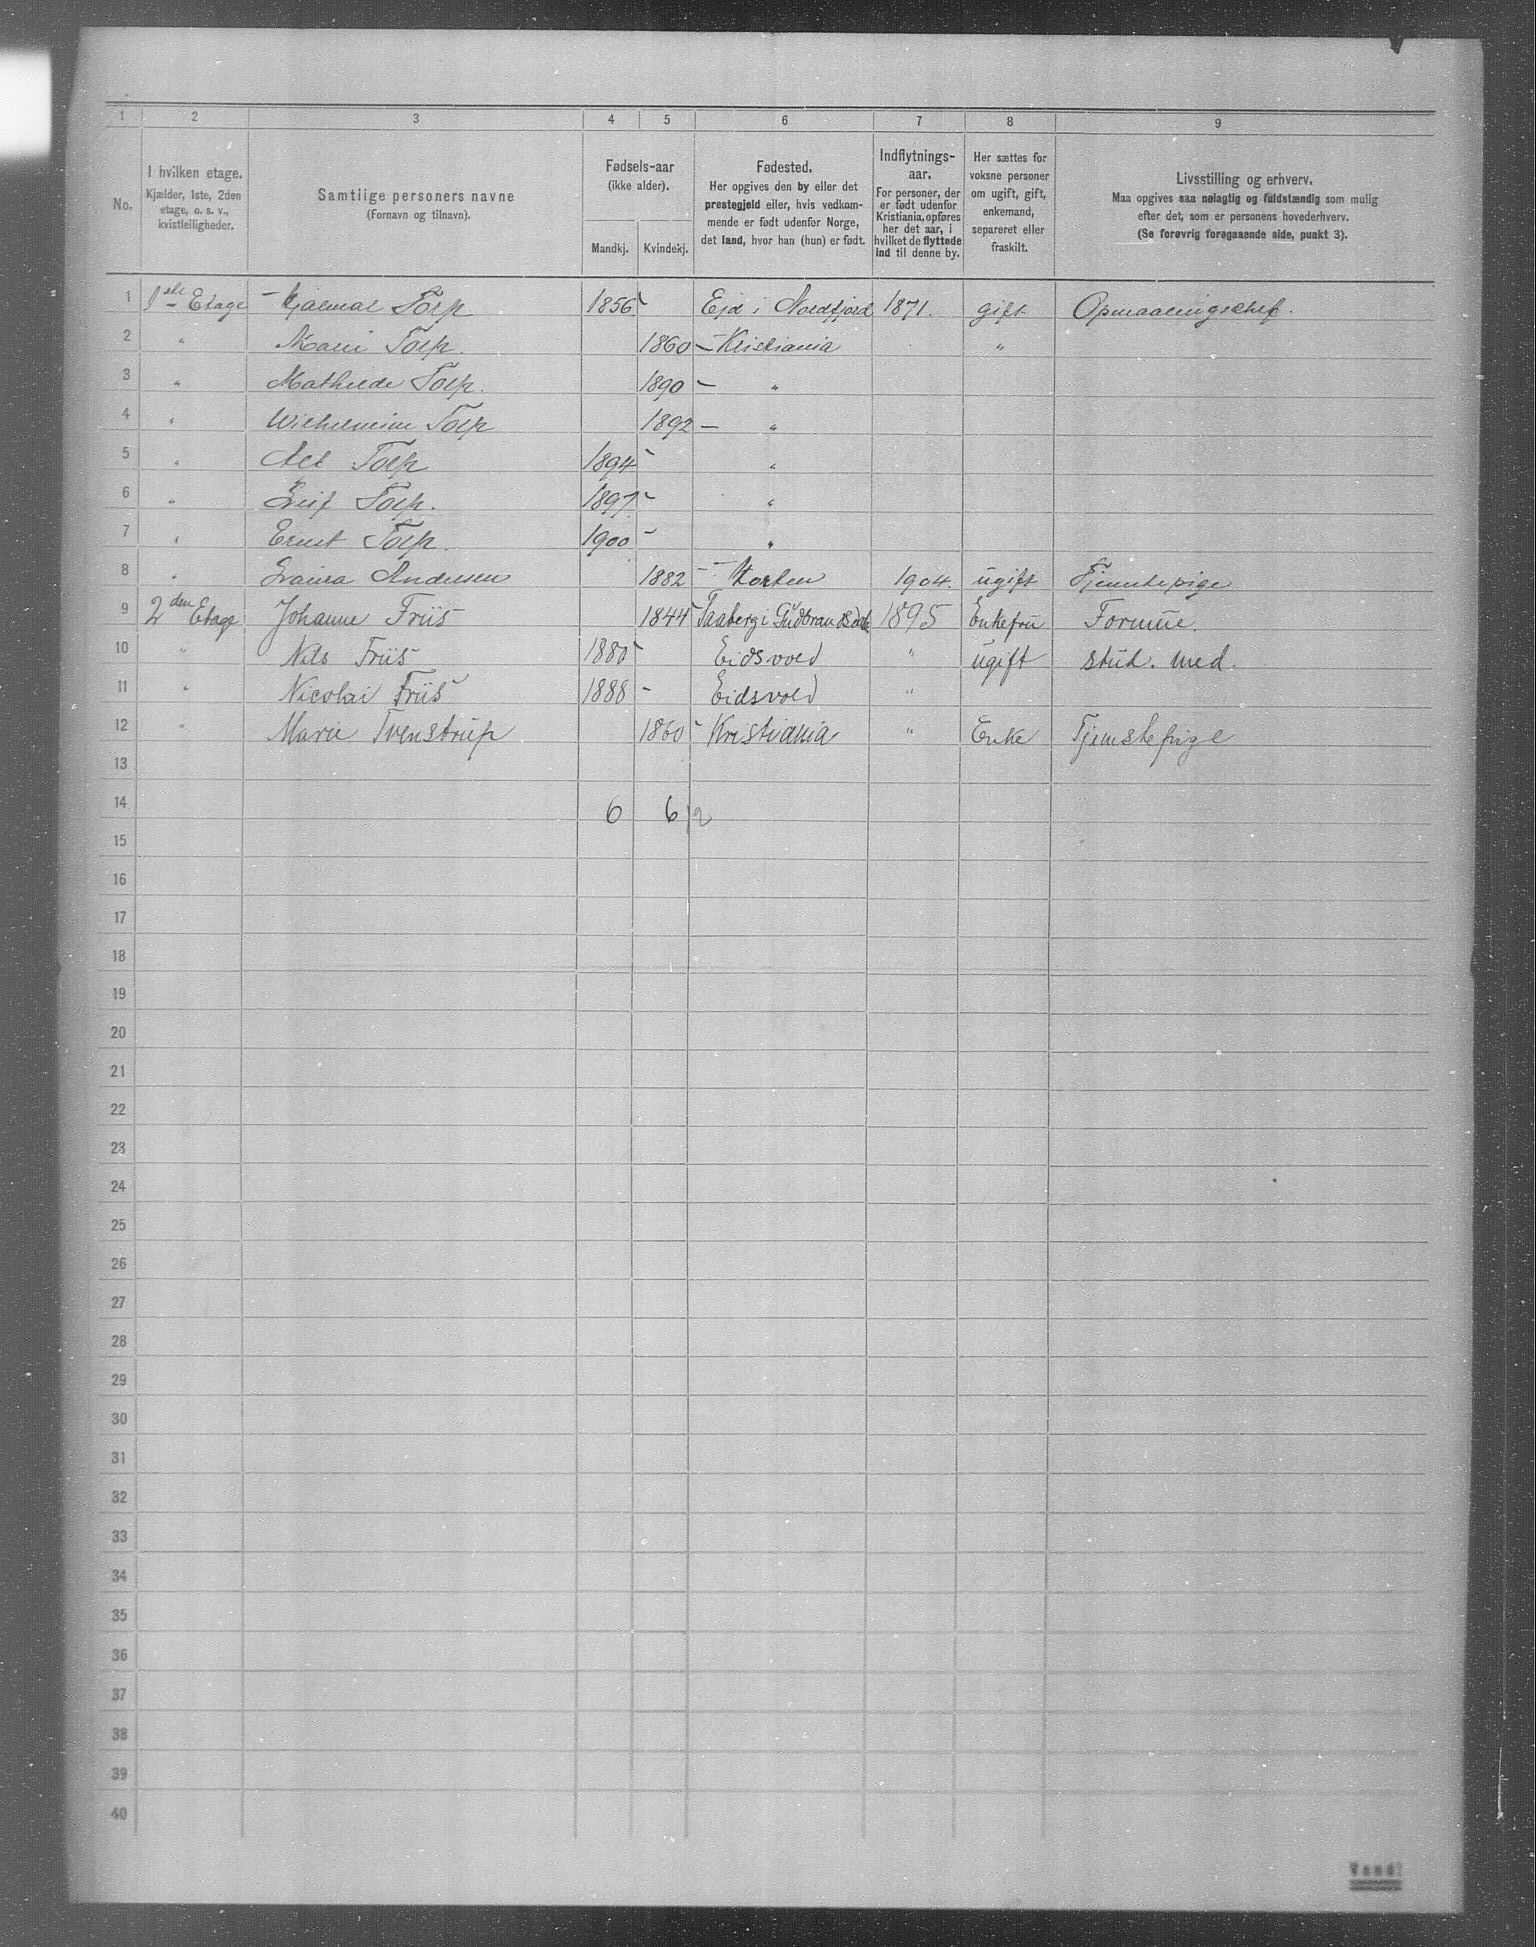 1 2 3 4 5 6 7 8 9
No.
I hvilken etage.
Kjælder, 1ste, 2den
etage, o. s. v.,
kvistleiligheder.
Samtlige personers navne
(Fornavn og tilnavn).
Fødsels-aar
(ikke alder).
Mandkj. Kvindekj.
Fødested.
Her opgives den by eller det
prestegjeld eller, hvis vedkom-
mende er født udenfor Norge,
det land, hvor han (hun) er født.
Indflytnings-
aar.
For personer, der
er født udenfor
Kristiania, opføres
her det aar, i
hvilket de flyttede
ind til denne by.
Her sættes for
voksne personer
om ugift, gift,
enkemand,
separeret eller
fraskilt.
Livsstilling og erhverv.
Maa opgives saa nøiagtig og fuldstændig som mulig
efter det, som er personens hovederhverv.
(Se forøvrig foregaaende side, punkt 3).
1 1ste Etage Hjalmar Torp 1856 Ejd i Nordfjord 1871. gift Opmaalingschef.
2 " Marie Torp. 1860 – Kristiania "
3 " Mathilde Torp. 1890 – "
4 " Wilhelmine Torp 1892 – "
5 " Alf Torp 1894 - "
6 " Leif Torp. 1897 - "
7 " Ernst Torp. 1900 – "
8 " Laura Andersen 1882 – Horten 1904. ugift Tjenstepige
9 2den Etage Johanne Friis 1844 Faaberg i Gudbrandsdal 1895 Enkefru Formue.
10 " Nils Friis 1880 Eidsvold " ugift stud. med.
11 " Nicolai Friis 1888 - Eidsvold "
12 " Marie Tvenstrup 1860 - Kristiania " Enke Tjenstepige
13
14 6 6 12
15
16
17
18
19
20
21
22
23
24
25
26
27
28
29
30
31
32
33
34
35
36
37
38
39
40
Vend!